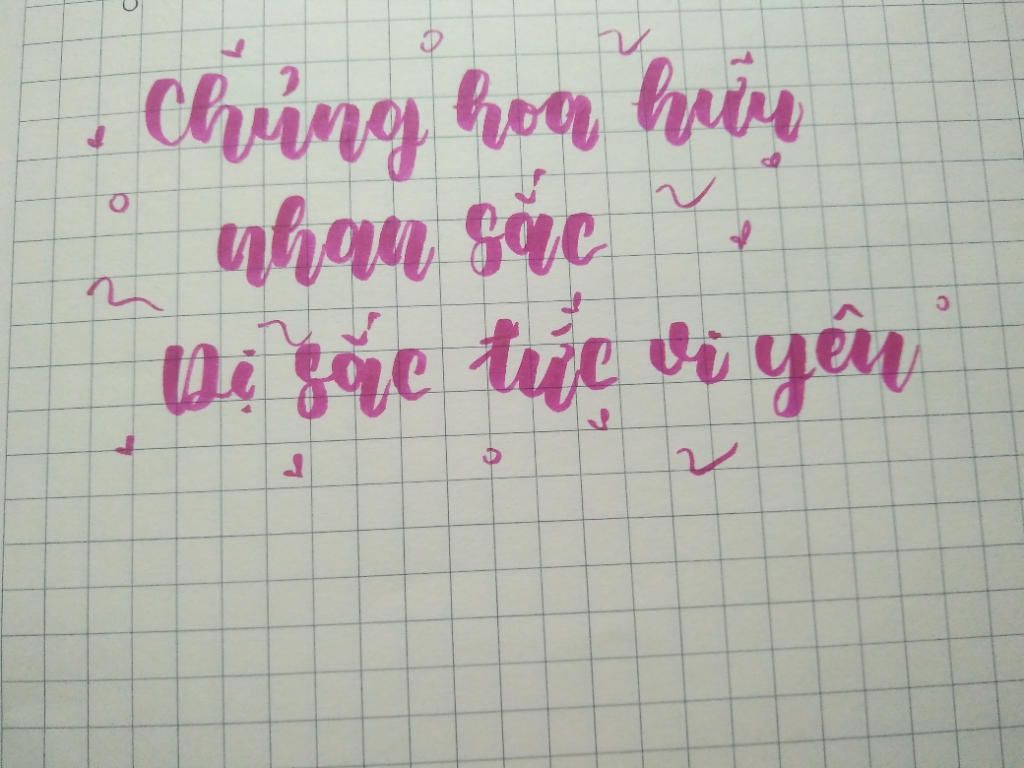 Chủng hoa hữu
nhan sắc
Dị sắc tức vi yên